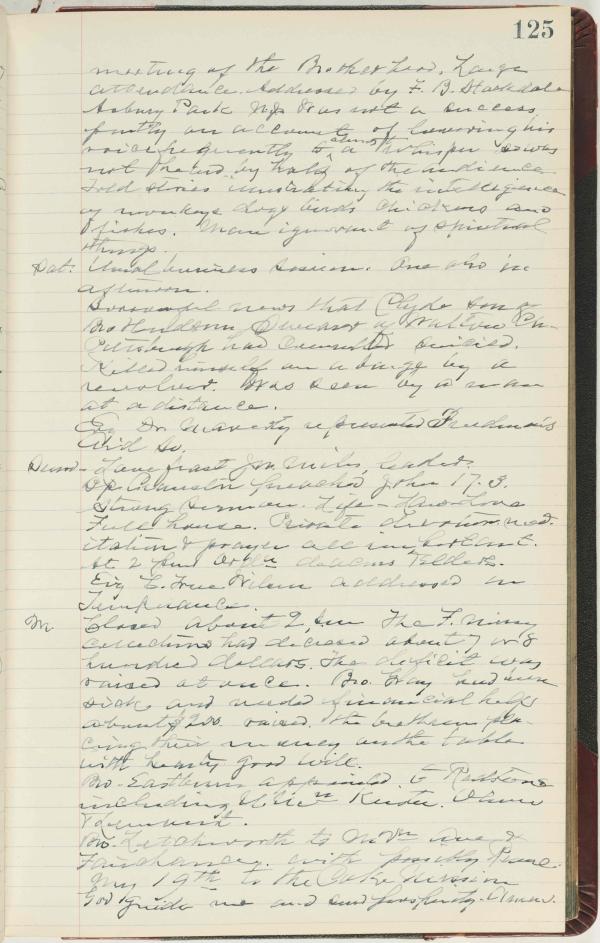 125
meeting of the Brotherhood. Large
attendance. Addressed by F. B. Stockdale
Asbury Park N.J. Was not a success
partly on account of lowering his
voice frequently to almost a whisper so was
not heard by half of the audience
Told stories illustrating the intelligence
of monkeys dogs birds chickens and
fishes. Man ignorant of spiritual
things.
Sat. Usual business session. One also in
afternoon.
Sorrowful news that Clyde son of
Bro Henderson, of Ch.
Pittsburgh had committed suicide.
Killed himself on a barge by a
revolver. Was seen by a man
at a distance.
Eve Dr. represented Freedman's
Aid So.
Love feast Jno. Miles, leader.
Bp. Cranston preached John 17.3.
Strong sermon. Life - Love
Full house. Private devotion med-
itation & prayer all important.
At 2 P.m. deacons & elders.
Evg C. True Wilson addressed on
Temperance.
M. Closed about 2 P.m. The F. missy
collections had decreased about 7 or 8
hundred dollars. The deficit was
raised at once. Bro. Gray had been
sick and needed financial help
about $200 raised. The brethren pla-
cing their money on the table
with hearty good will.
Bro. appointed to Redstone
including
&
Bro. Letchworth to Ave &
Fairchance. with
My 19th to the Division
God guide me and send prosperity. Amen.